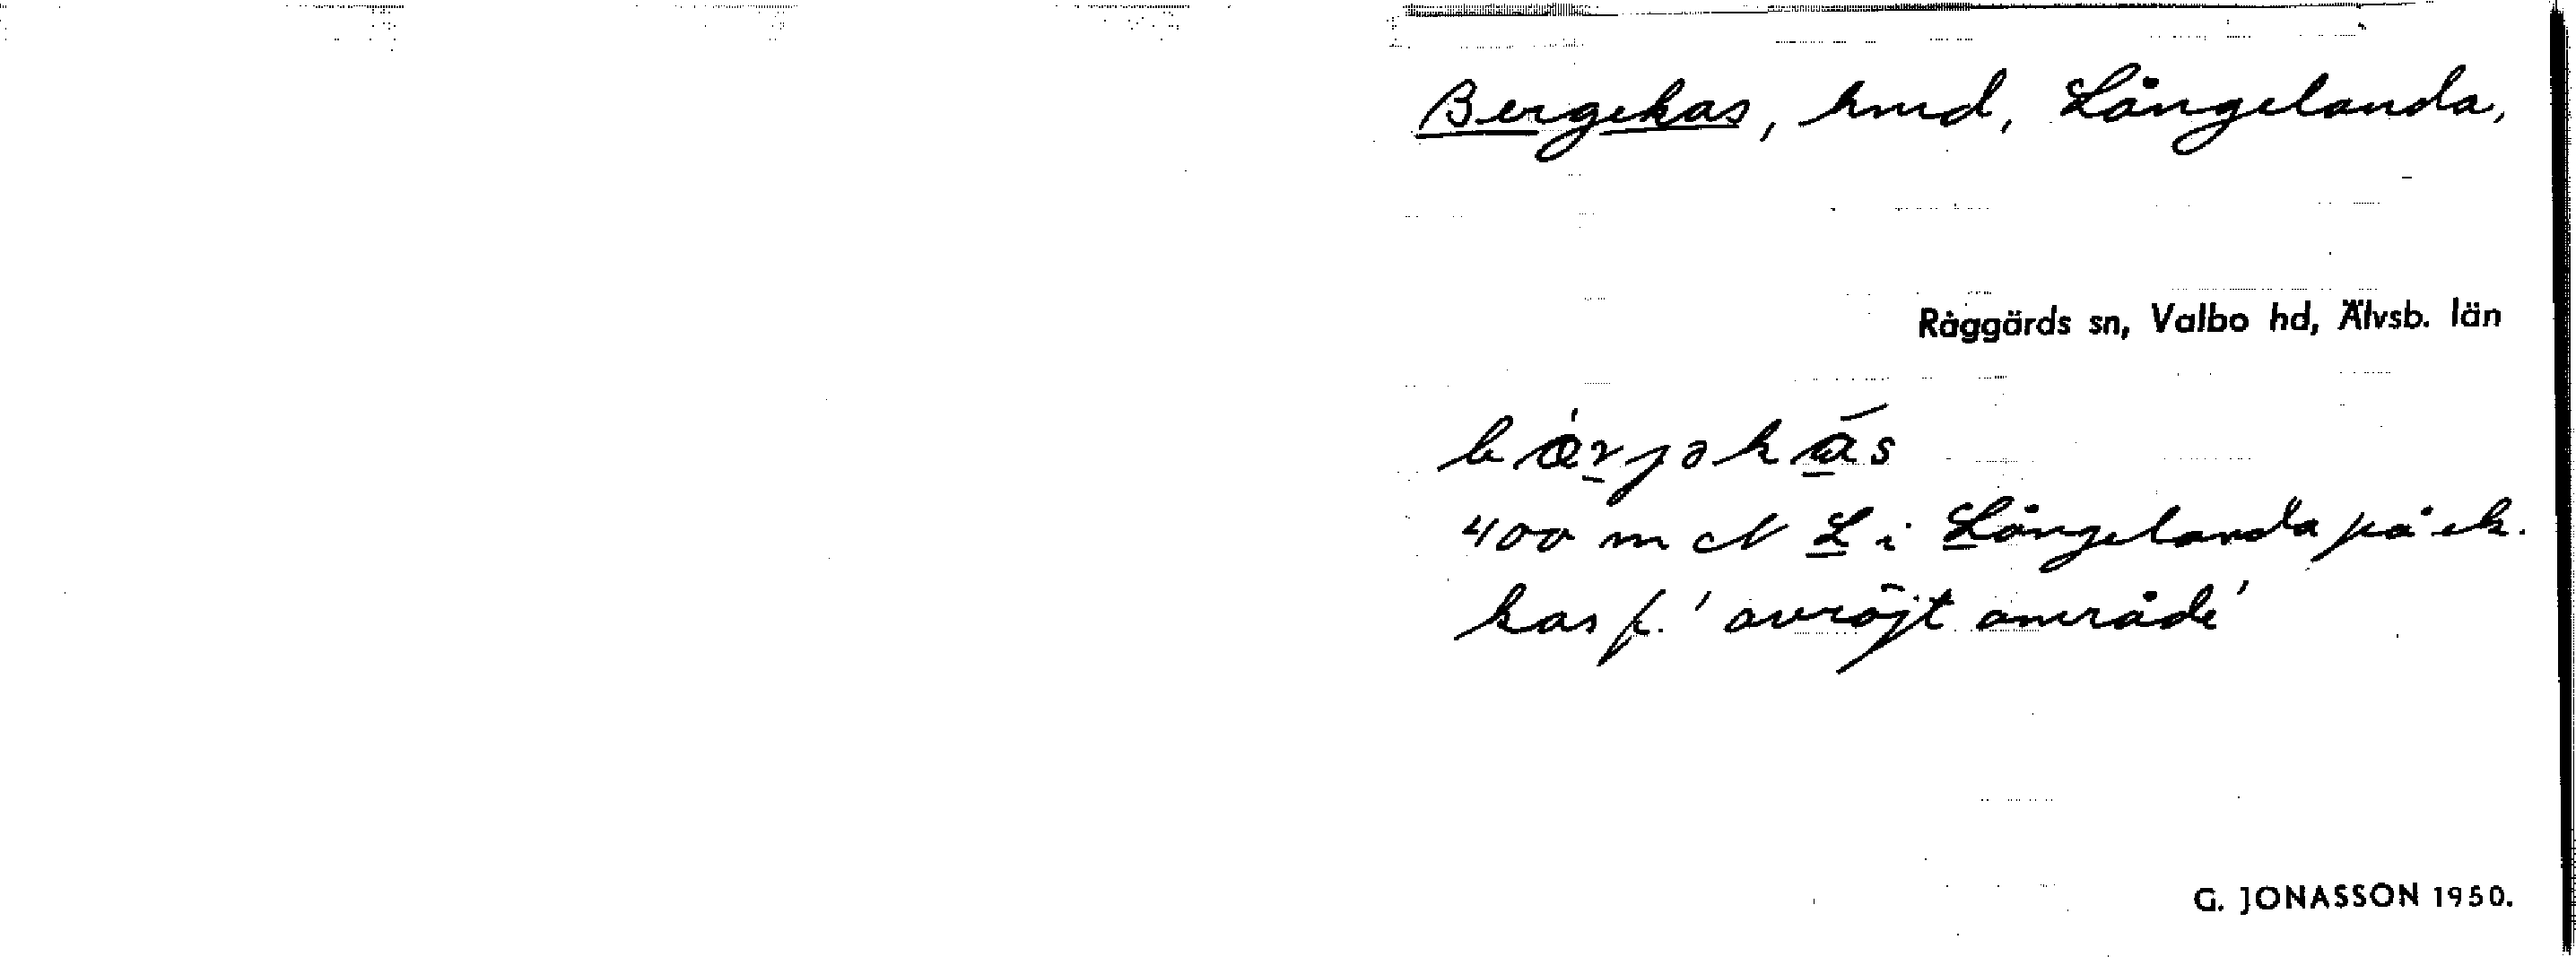 Bergekas, hmd, Långelanda,
Råggärds sn, Valbo hd, Älvsb. län
bærjəkas
400 m N L i Långelanda på ek.
kas f. 'avröjt område'
G. JONASSON 1950.